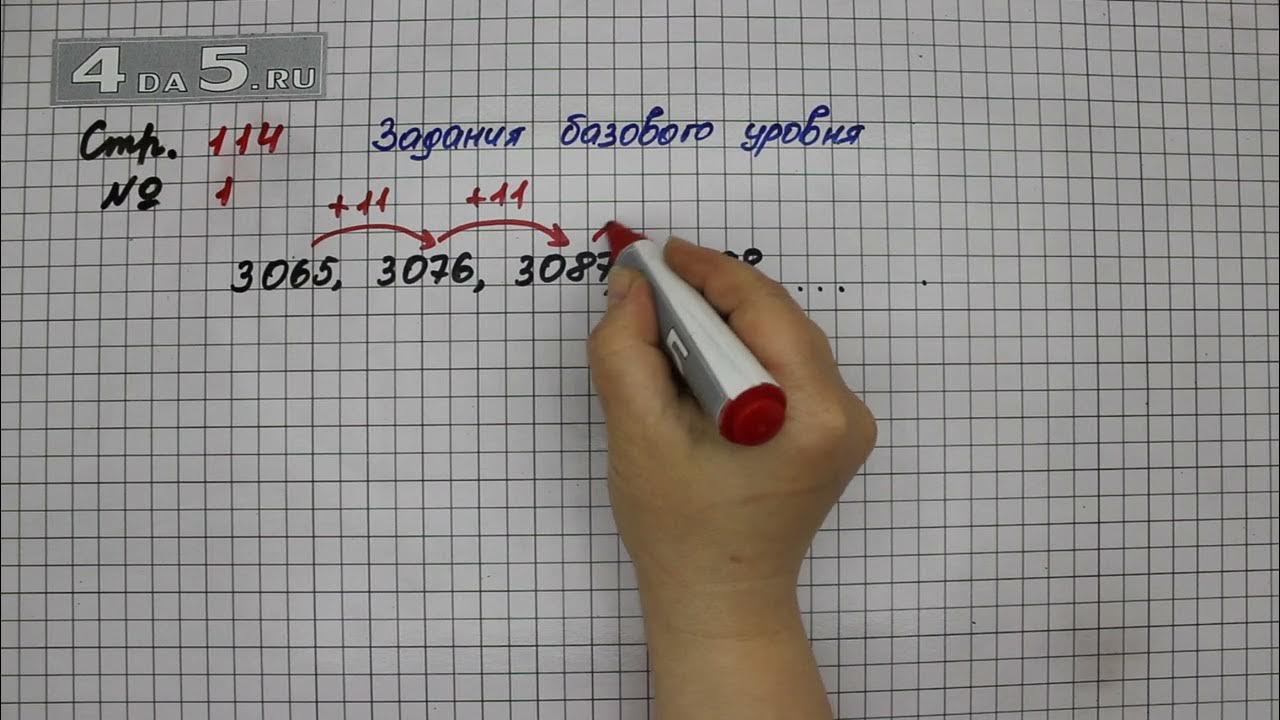 4DA5.RU
Стр. 114 Задания базового уровня
№ 1
+11 +11
3065, 3076, 3087, ... .